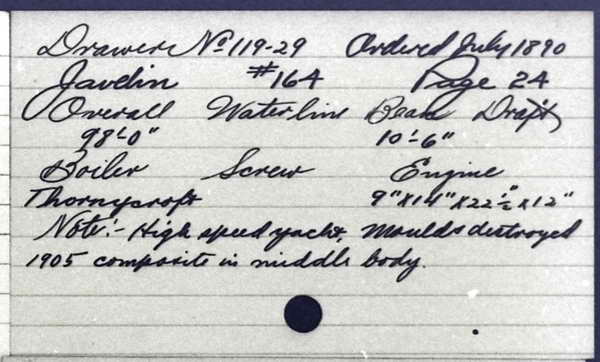 Drawer No 119-29 Ordered July 1890
Javelin #164 Page 24
Overall Waterline Beam Draft
98'-0" 10'-6"
Boiler Screw Engine
Thornycroft 9"x14"x22½"x12"
Note:- High speed yacht, Moulds destroyed
1905 composite in middle body.